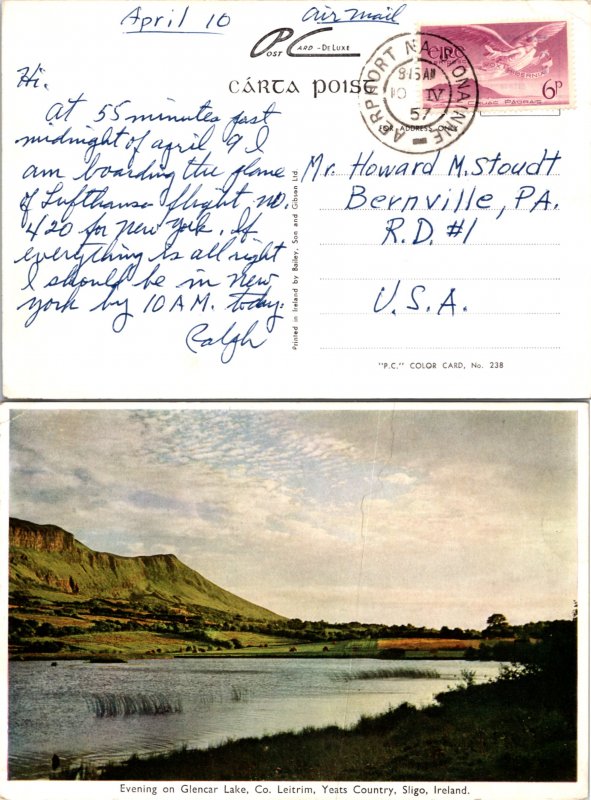 April 10
Air Mail
POST CARD - DE LUXE
CÁRTA POIST
FOR ADDRESS ONLY
AERPHORT NA SIONAINNE
8.15 AM
10 IV
57
EIRE
VOX HIBERNIAE
6p
Hi.
At 55 minutes past
midnight of april 9 I
am boarding the plane
of Lufthansa flight no.
420 for New York. If
everything is all right
I should be in New
York by 10 AM. today.
Ralph
Printed in Ireland by Bailey, Son and Gibson Ltd.
Mr. Howard M. Stoudt
Bernville, PA.
R.D. #1
U.S.A.
"P.C." COLOR CARD, No. 238
Evening on Glencar Lake, Co. Leitrim, Yeats Country, Sligo, Ireland.